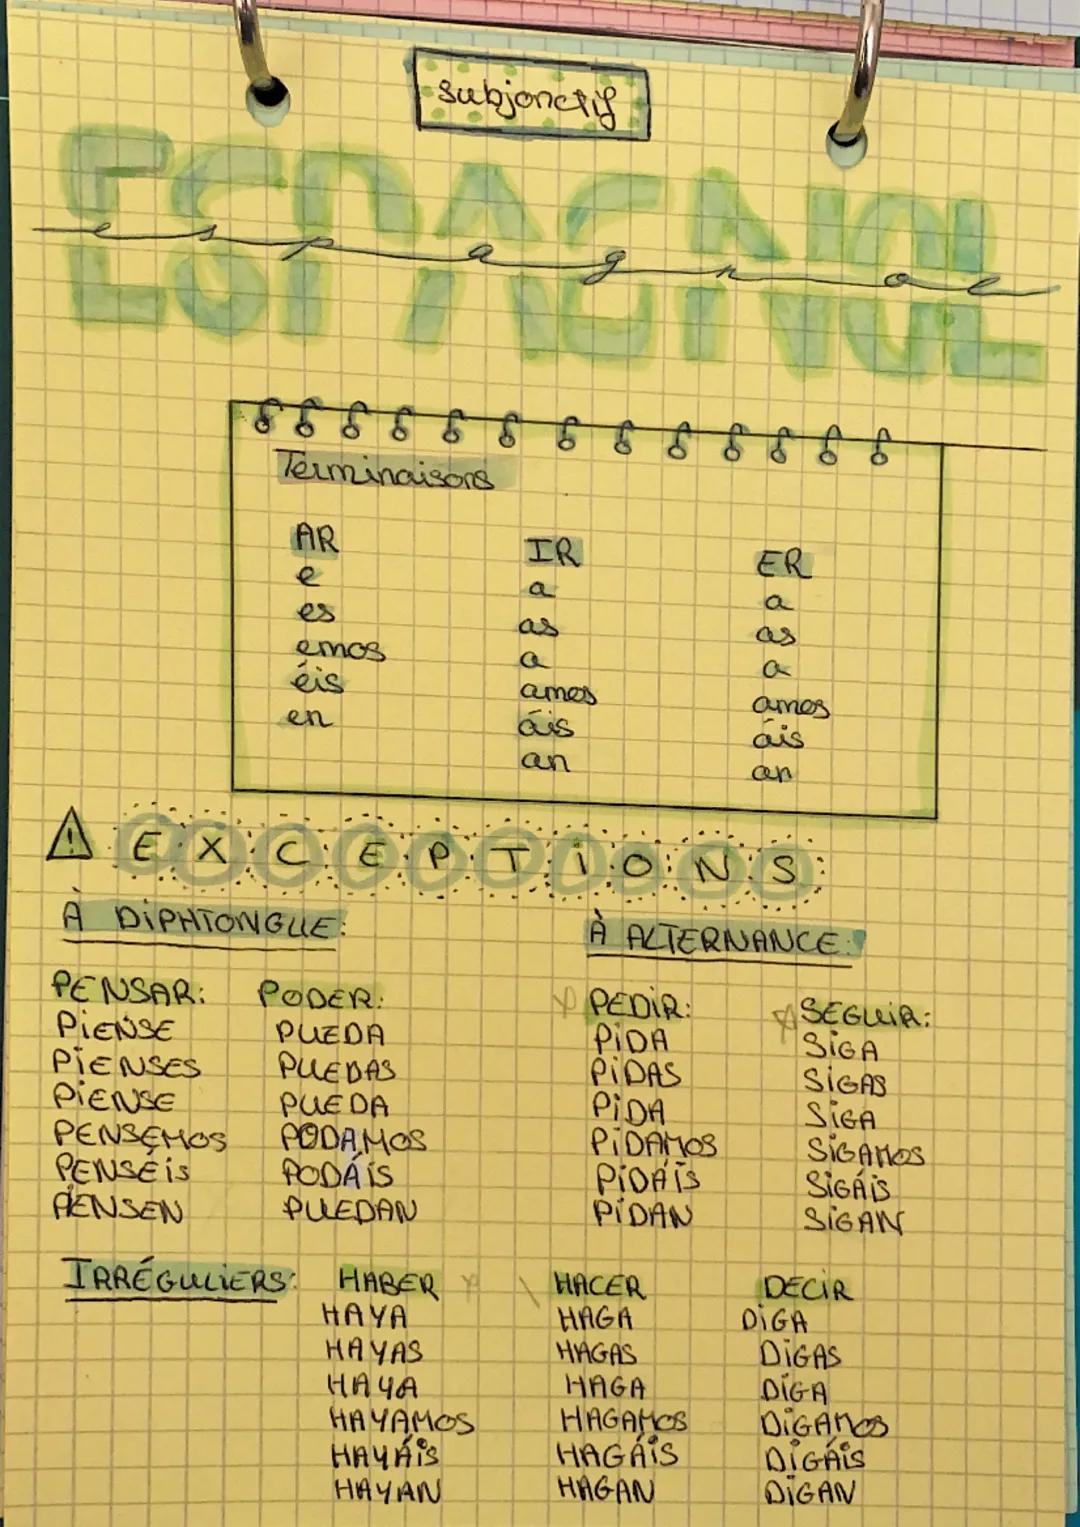 subjonctif
ESPAGNOL
espagnol
Terminaisons
AR IR ER
e a a
es as as
emos a a
éis amos amos
en áis áis
an an
EXCEPTIONS
À DIPHTONGUE: À ALTERNANCE:
PENSAR: PODER: PEDIR: SEGUIR:
PIENSE PUEDA PIDA SIGA
PIENSES PUEDAS PIDAS SIGAS
PIENSE PUEDA PIDA SIGA
PENSEMOS PODAMOS PIDAMOS SIGAMOS
PENSÉIS PODÁIS PIDÁIS SIGÁIS
PENSEN PUEDAN PIDAN SIGAN
IRRÉGULIERS: HABER HACER DECIR
HAYA HAGA DIGA
HAYAS HAGAS DIGAS
HAYA HAGA DIGA
HAYAMOS HAGAMOS DIGAMOS
HAYÁIS HAGÁIS DIGÁIS
HAYAN HAGAN DIGAN